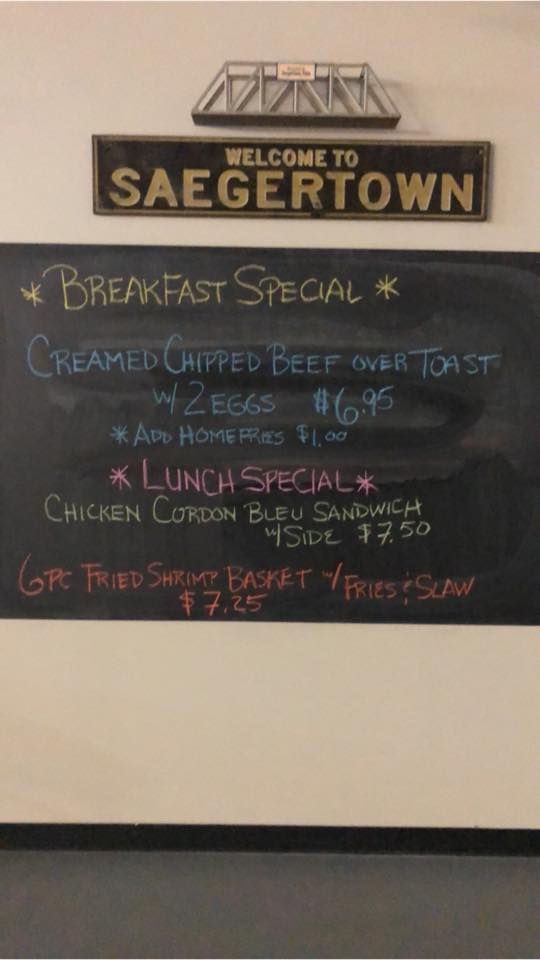 WELCOME TO
SAEGERTOWN
* BREAKFAST SPECIAL *
CREAMED CHIPPED BEEF OVER TOAST
W/ 2 EGGS $6.95
* ADD HOMEFRIES $1.00
* LUNCH SPECIAL *
CHICKEN CORDON BLEU SANDWICH
W/ SIDE $7.50
6PC FRIED SHRIMP BASKET W/ FRIES & SLAW
$7.25